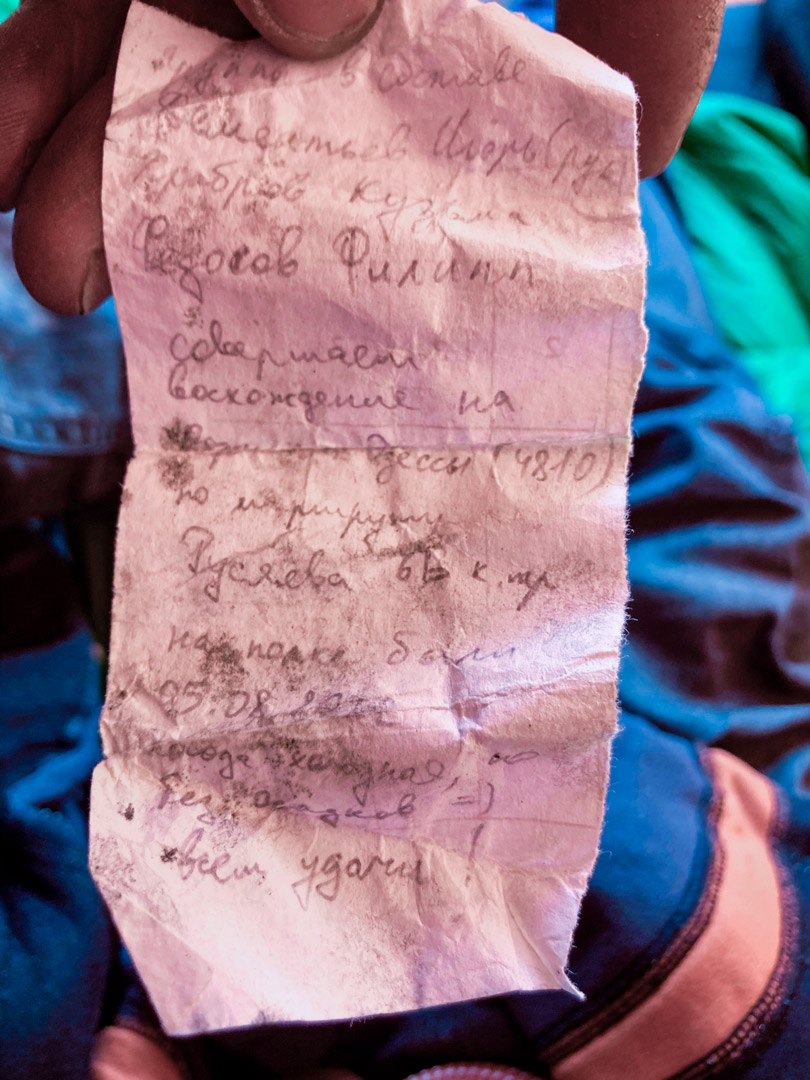 Группа в составе
Дементьев Игорь (рук
Храбров Кузьма
Федосов Филипп
совершаем
восхождение на
вершину Одессы (4810)
по маршруту
Русяева 6Б к.тр
на полке были
05.08.
погода холодная, но
без осадков =)
всем удачи!